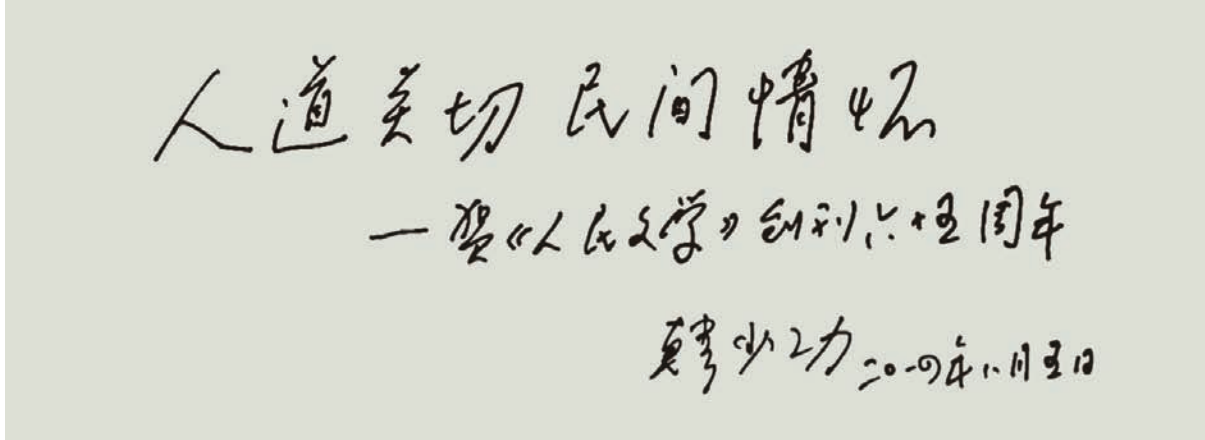 人道关切 民间情怀
—贺《人民文学》创刊六十五周年
韩少功 二〇一四年八月五日